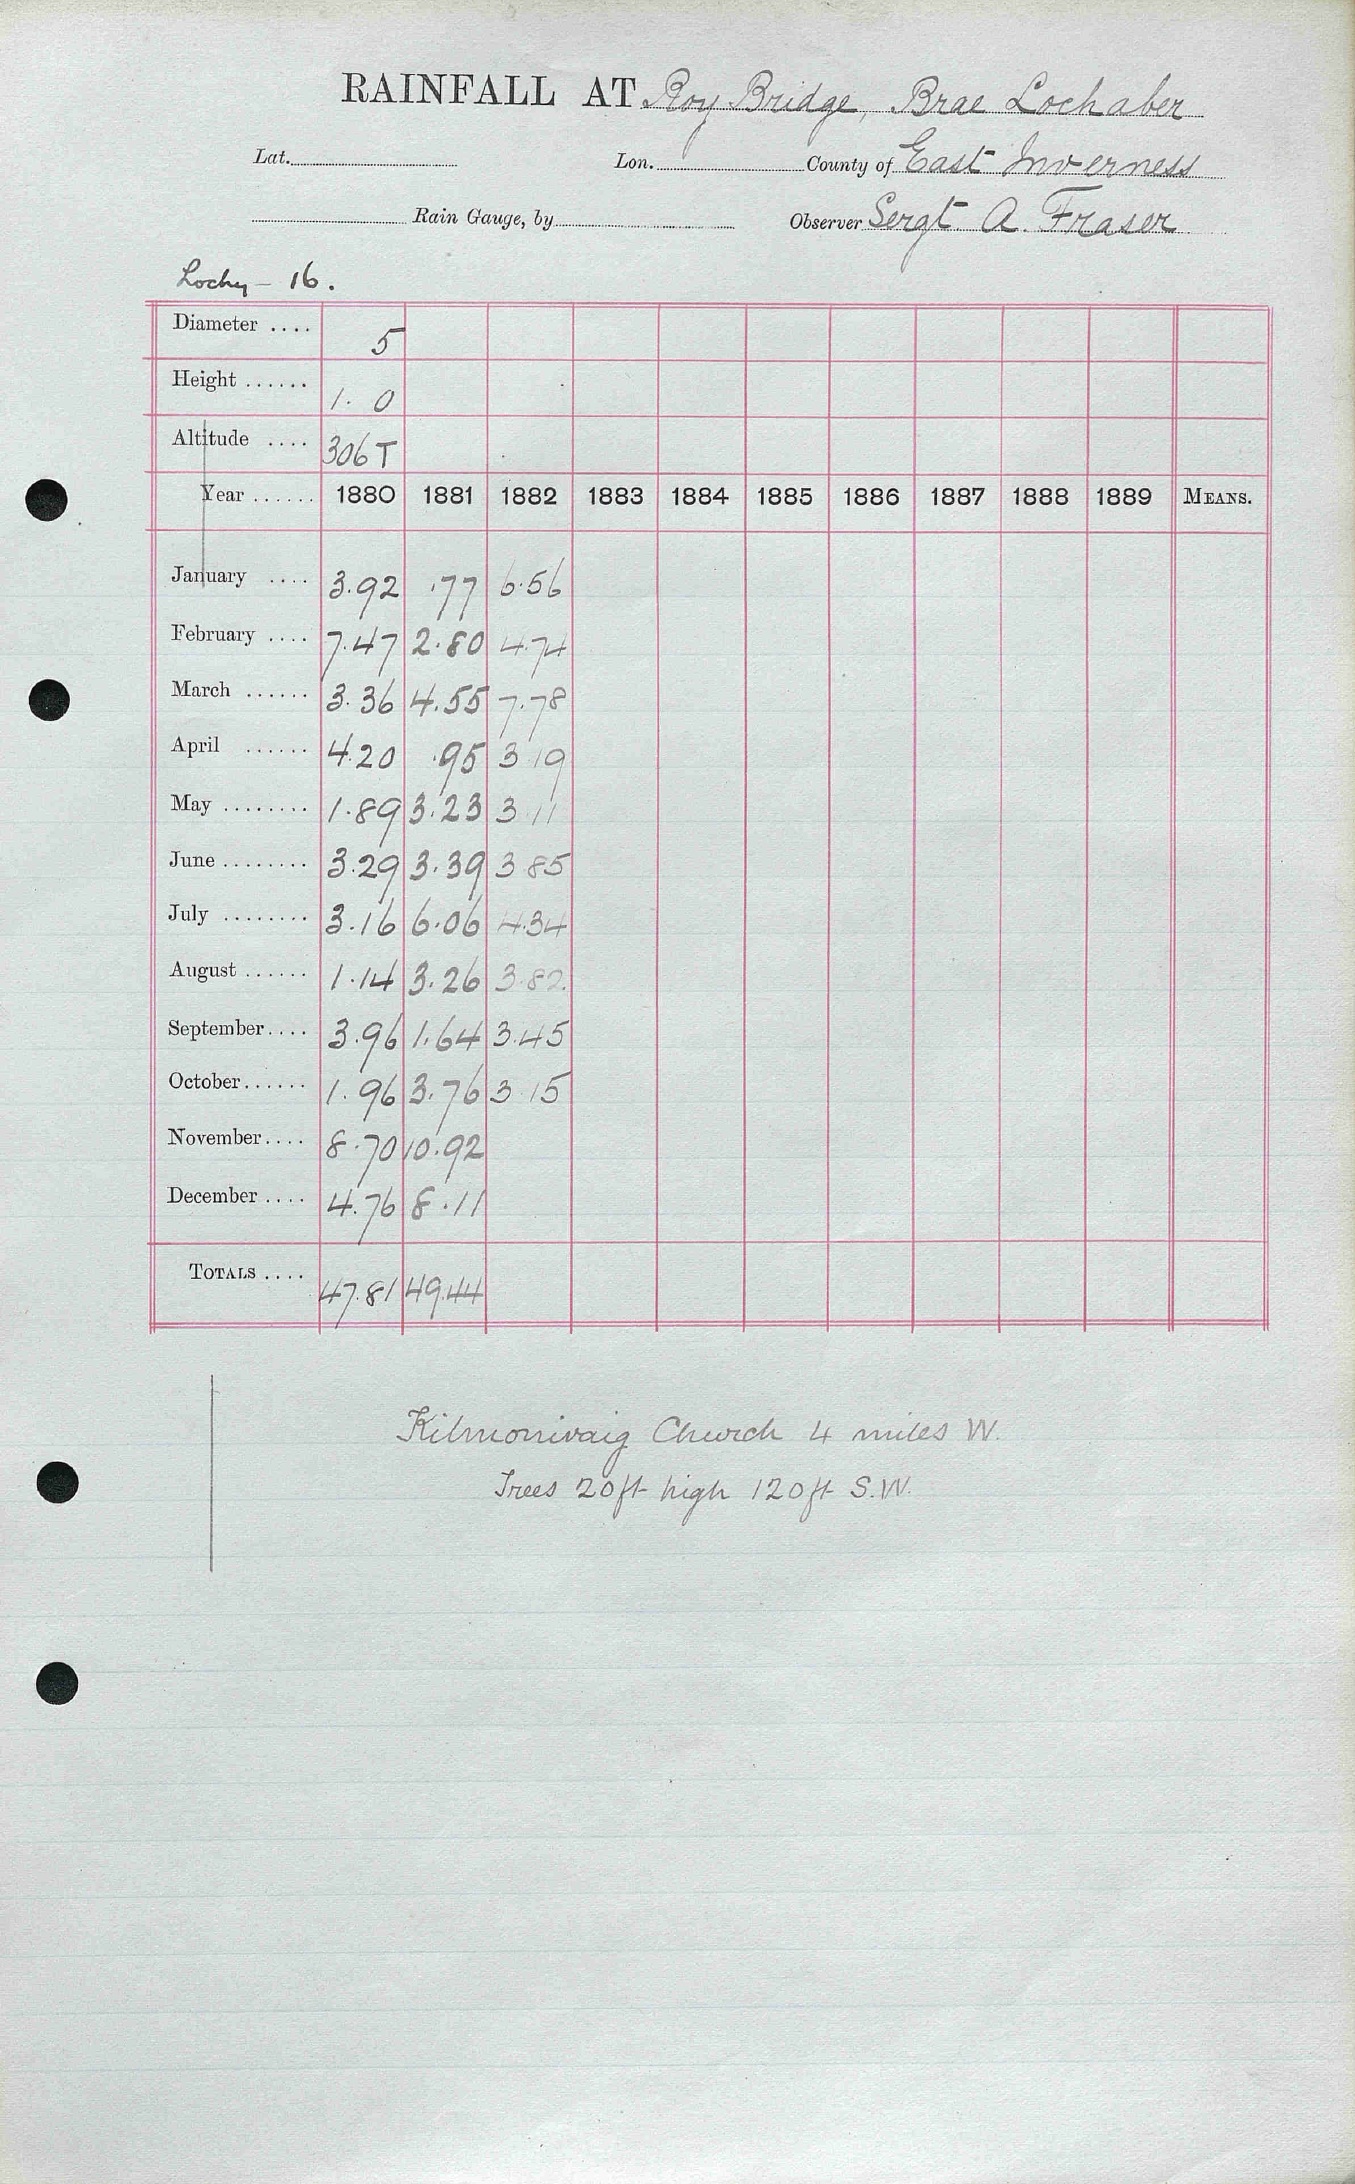 RAINFALL AT Roy Bridge, Brae Lochaber
Lat. Lon. County of East Inverness
Rain Gauge, by Observer Sergt. A. Fraser
Lochy - 16.
Diameter .... 5
Height ...... 1. 0
Altitude .... 306 T
Year ...... 1880 1881 1882 1883 1884 1885 1886 1887 1888 1889 MEANS.
January .... 3.92 .77 6.56
February .... 7.47 2.80 4.74
March ...... 3.36 4.55 7.78
April ...... 4.20 .95 3 19
May ........ 1.89 3.23 3 11
June ........ 3.29 3.39 3 85
July ........ 3.16 6.06 4.34
August ...... 1.14 3.26 3.82
September .... 3.96 1.64 3.45
October ...... 1.96 3.76 3 15
November .... 8.70 10.92
December .... 4.76 8.11
TOTALS .... 47.81 49.44
Kilmonivaig Church 4 miles W.
Trees 20ft high 120ft S.W.